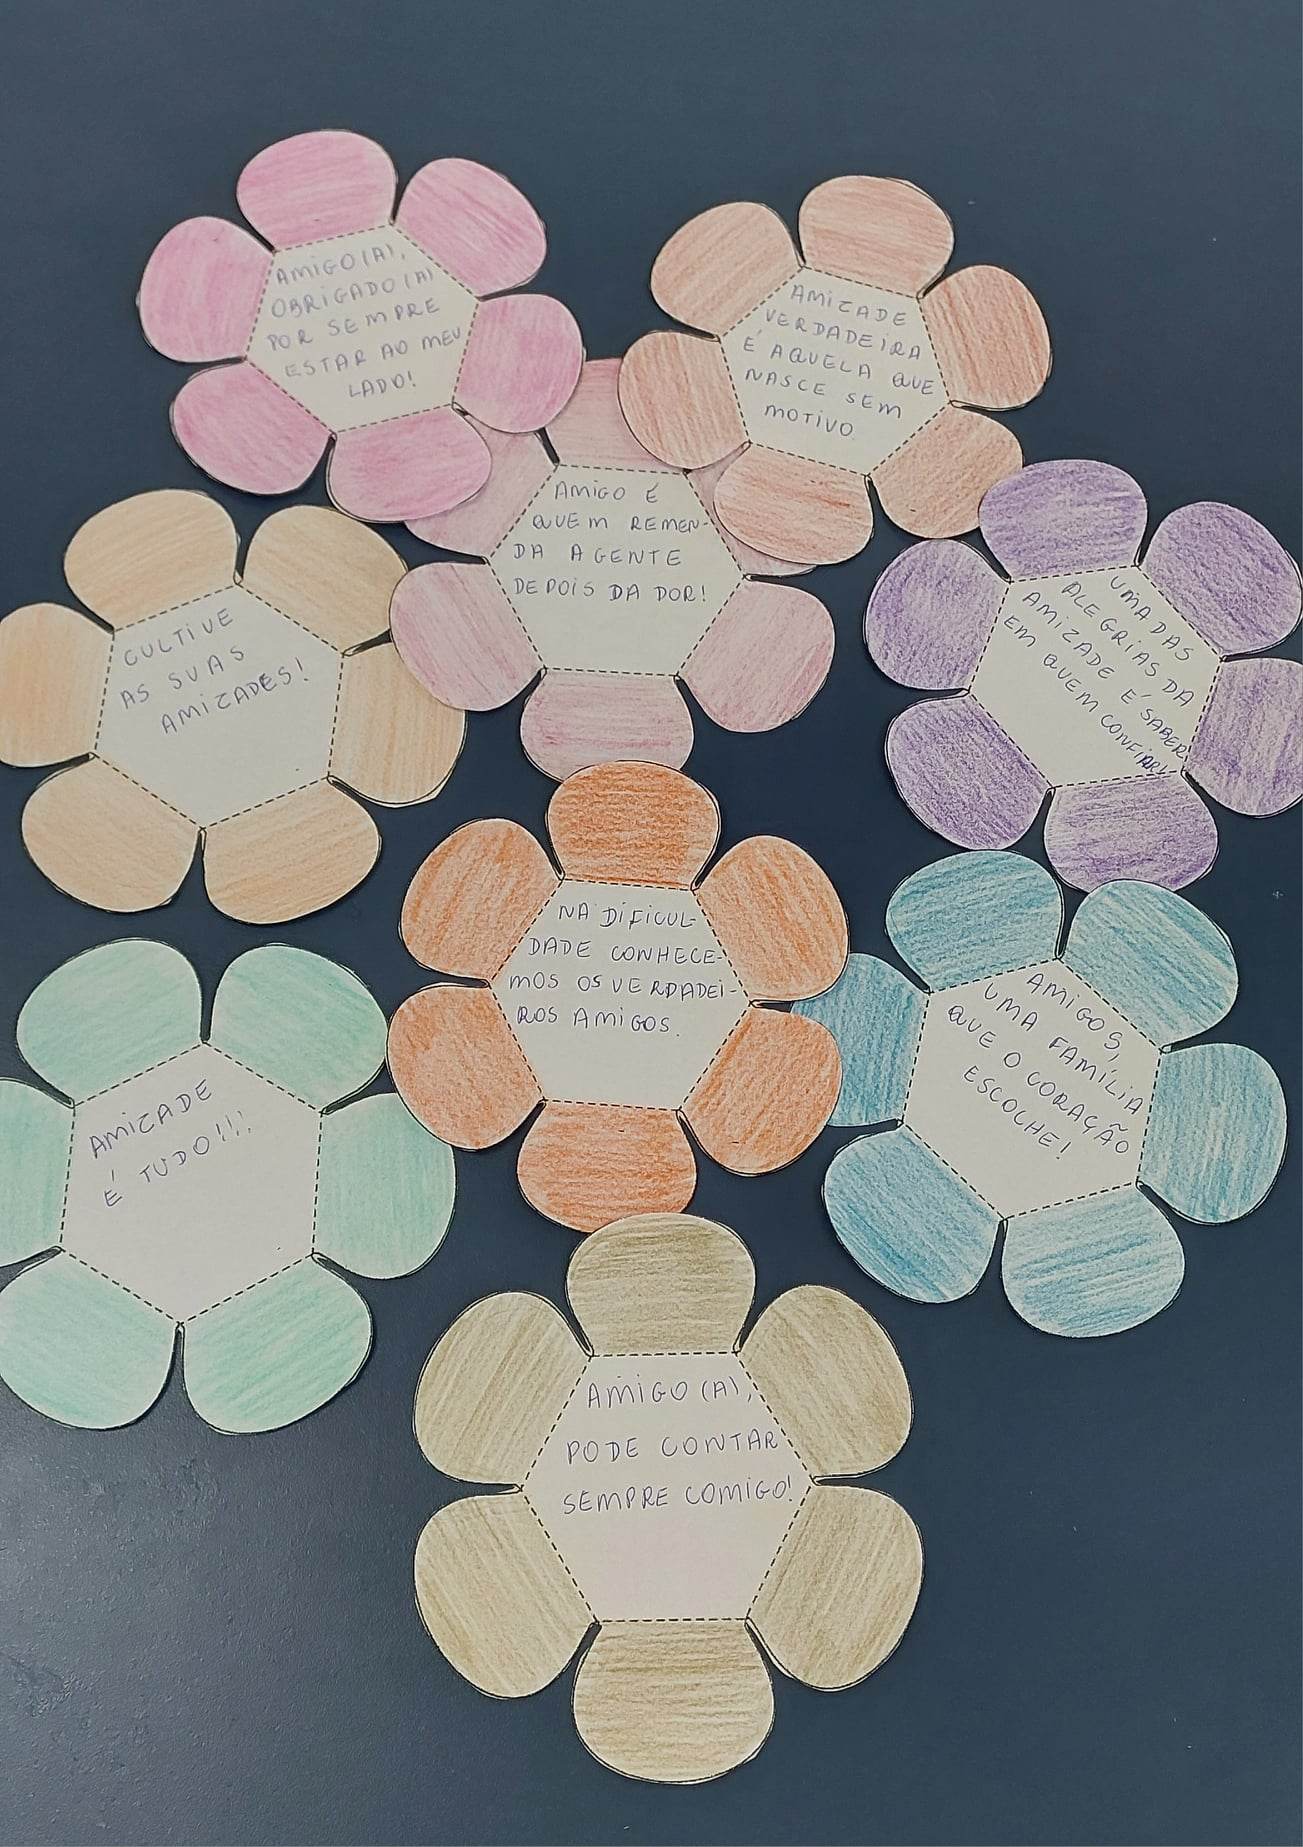 AMIGO(A),
OBRIGADO(A)
POR SEMPRE
ESTAR AO MEU
LADO!
AMIZADE
VERDADEIRA
É AQUELA QUE
NASCE SEM
MOTIVO.
AMIGO É
QUEM REMEN-
DA A GENTE
DEPOIS DA DOR!
CULTIVE
AS SUAS
AMIZADES!
UMA DAS
ALEGRIAS DA
AMIZADE É SABER
EM QUEM CONFIAR!
NA DIFICUL-
DADE CONHECE-
MOS OS VERDADEI-
ROS AMIGOS.
AMIGOS,
UMA FAMÍLIA
QUE O CORAÇÃO
ESCOLHE!
AMIZADE
É TUDO!!!
AMIGO(A),
PODE CONTAR
SEMPRE COMIGO!